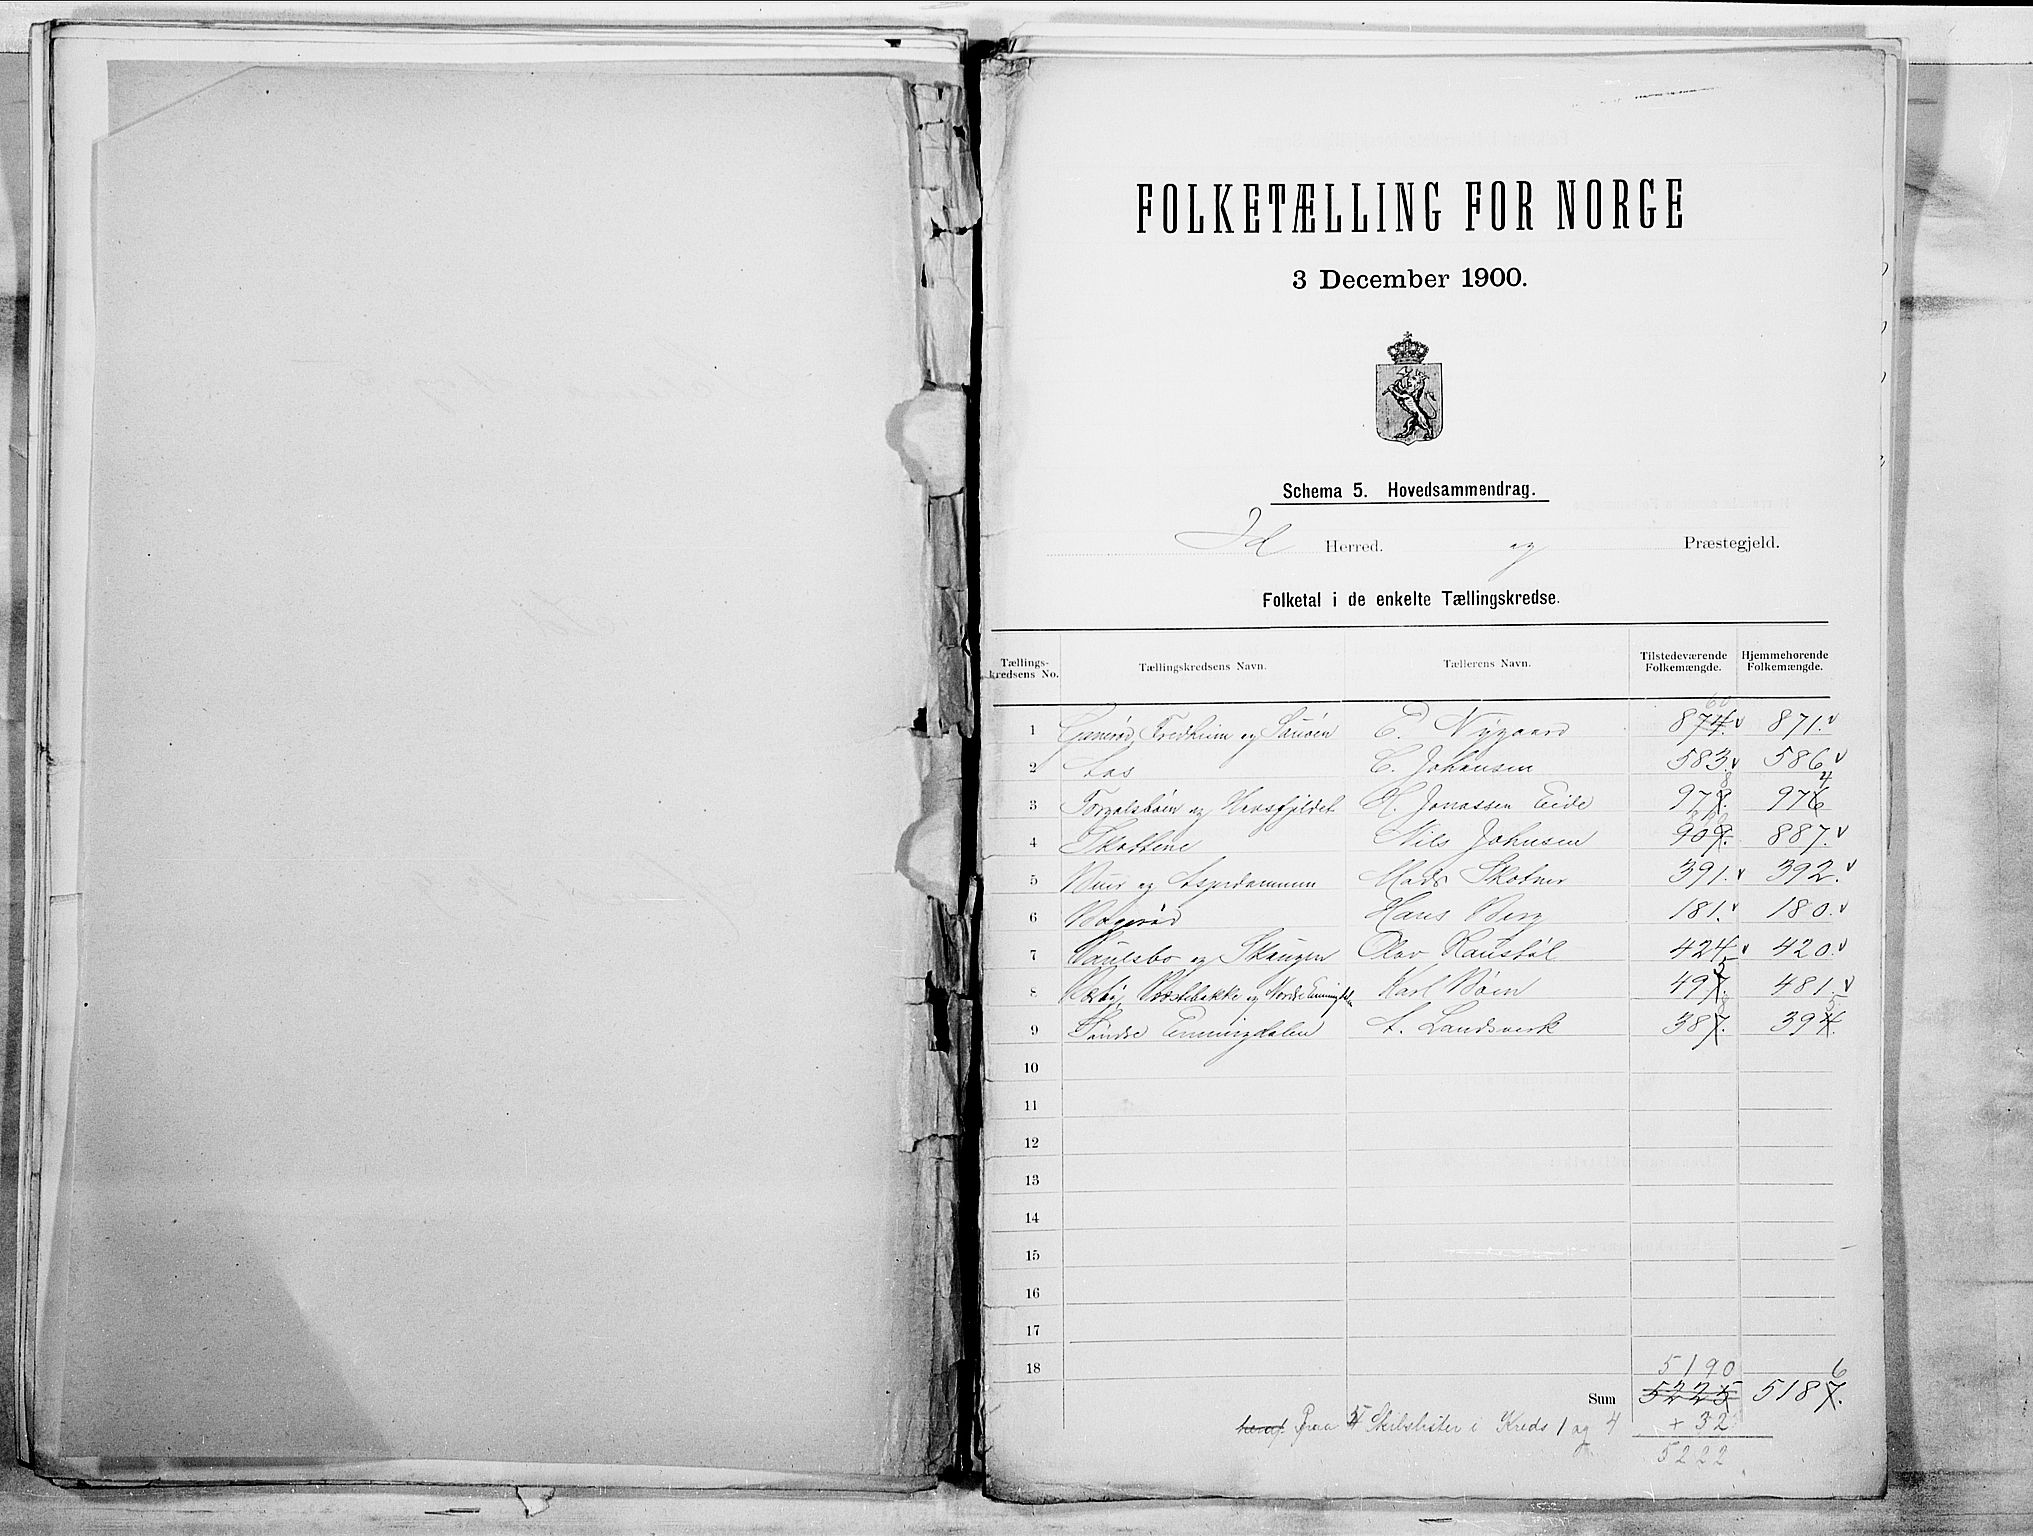 FOLKETÆLLING FOR NORGE
3 December 1900.
Schema 5. Hovedsammendrag.
Id Herred. og Præstegjeld.
Folketal i de enkelte Tællingskredse.
Tællings-kredsens No. Tællingskredsens Navn. Tællerens Navn. Tilstedeværende Folkemængde. Hjemmehørende Folkemængde.
60
1 Fredheim og Sauøen E. Nygaard 874. v 871. v
2 Aas C. Johansen 583. v 586 v
8 4
3 Torgalsbøen og Havsfjeldet H. Jonassen Eide 979. 976
4 Skottene Nils Johnsen 909. 887. v
5 Buer og Aspedammen Mads Skotner 391. v 392. v
6 Bøgerød Hans Berg 181. v 180. v
7 Paulsbo og Skaugen Olav Raustøl 424 v 420. v
5
8 Præstebakke og Nordre Enningdalen Karl Böen 497. 481. v
8 5
9 Søndre Enningdalen A. Landsverk 387. 394.
10
11
12
13
14
15
16
17
18
5190 6
Sum 5225 5187.
paa 5 Skibslister i Kreds 1 og 4 + 32
5222